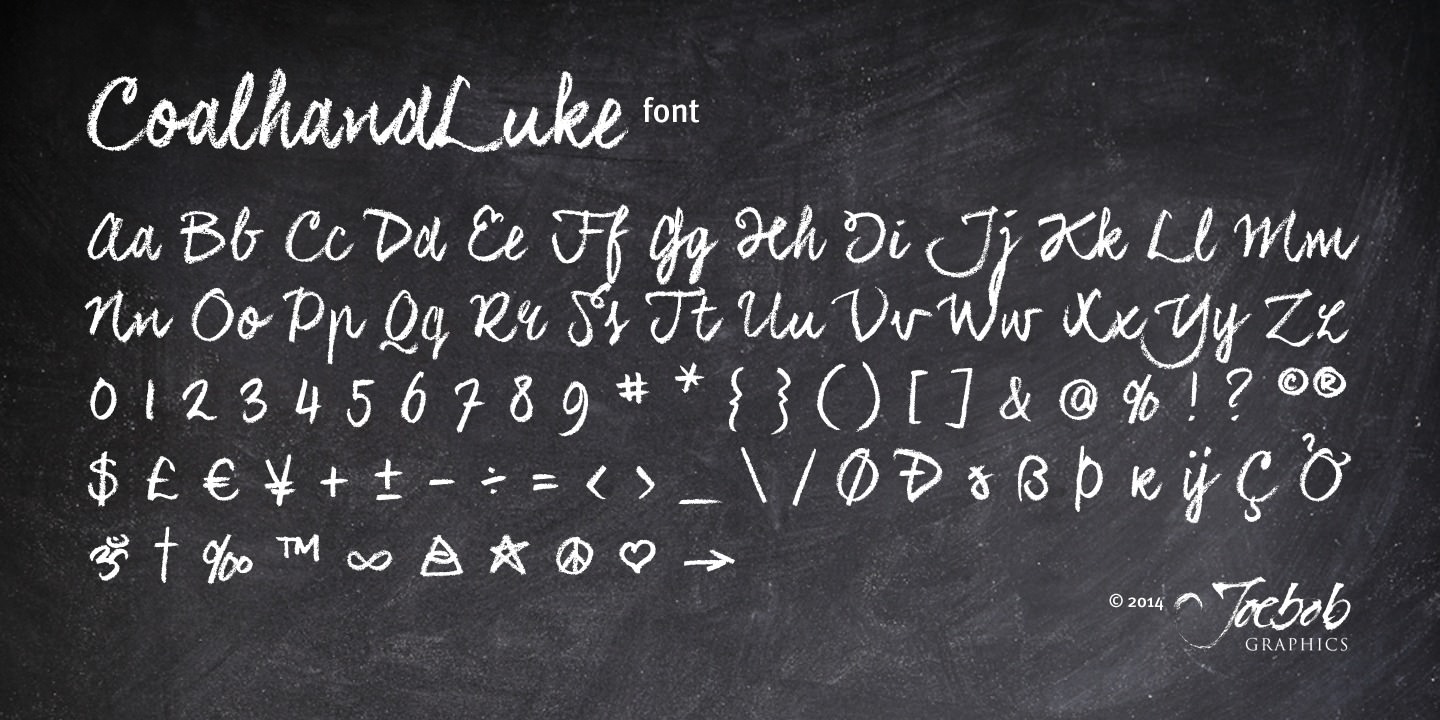 CoalhandLuke font
Aa Bb Cc Dd Ee Ff Gg Hh Ii Jj Kk Ll Mm
Nn Oo Pp Qq Rr Ss Tt Uu Vv Ww Xx Yy Zz
0 1 2 3 4 5 6 7 8 9 # * { } ( ) [ ] & @ % ! ? © ®
$ £ € ¥ + ± − ÷ = < > _ \ / Ø Đ ß þ ĸ ÿ Ç Ỏ
ॐ † ‰ ™ ∞ ☮ ♡ →
© 2014 Joebob
GRAPHICS